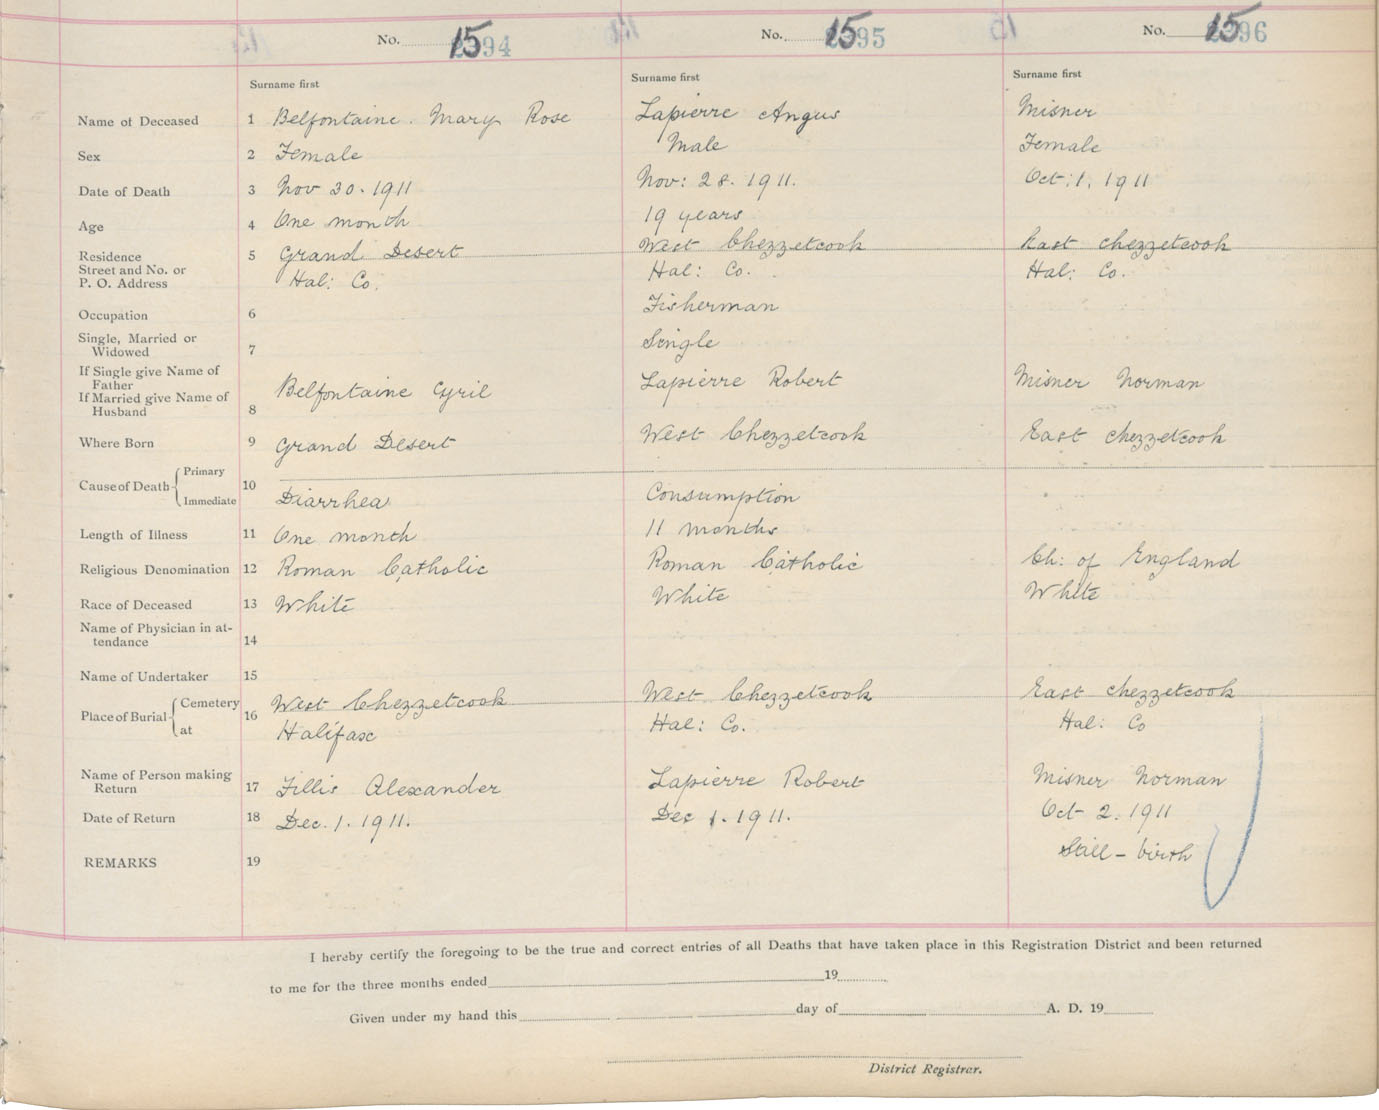 No. 1594 No. 1595 No. 1596
Surname first Surname first Surname first
Name of Deceased 1 Belfontaine. Mary Rose Lapierre Angus Misner
Sex 2 Female Male Female
Date of Death 3 Nov 30. 1911 Nov: 28. 1911. Oct: 1. 1911
Age 4 One month 19 years
Residence 5 Grand Desert West Chezzetcook East Chezzetcook
Street and No. or
P. O. Address Hal: Co. Hal: Co. Hal: Co.
Occupation 6 Fisherman
Single, Married or
Widowed 7 Single
If Single give Name of
Father
If Married give Name of
Husband 8 Belfontaine Cyril Lapierre Robert Misner Norman
Where Born 9 Grand Desert West Chezzetcook East Chezzetcook
Cause of Death Primary
10
Immediate Diarrhea Consumption
Length of Illness 11 One month 11 months
Religious Denomination 12 Roman Catholic Roman Catholic Ch: of England
Race of Deceased 13 White White White
Name of Physician in at-
tendance 14
Name of Undertaker 15
Place of Burial Cemetery 16 West Chezzetcook West Chezzetcook East Chezzetcook
at Halifax Hal: Co. Hal: Co
Name of Person making
Return 17 Fillis Alexander Lapierre Robert Misner Norman
Date of Return 18 Dec. 1. 1911. Dec 1. 1911. Oct 2. 1911
REMARKS 19 Still-birth
I hereby certify the foregoing to be the true and correct entries of all Deaths that have taken place in this Registration District and been returned
to me for the three months ended 19
Given under my hand this day of A. D. 19
District Registrar.